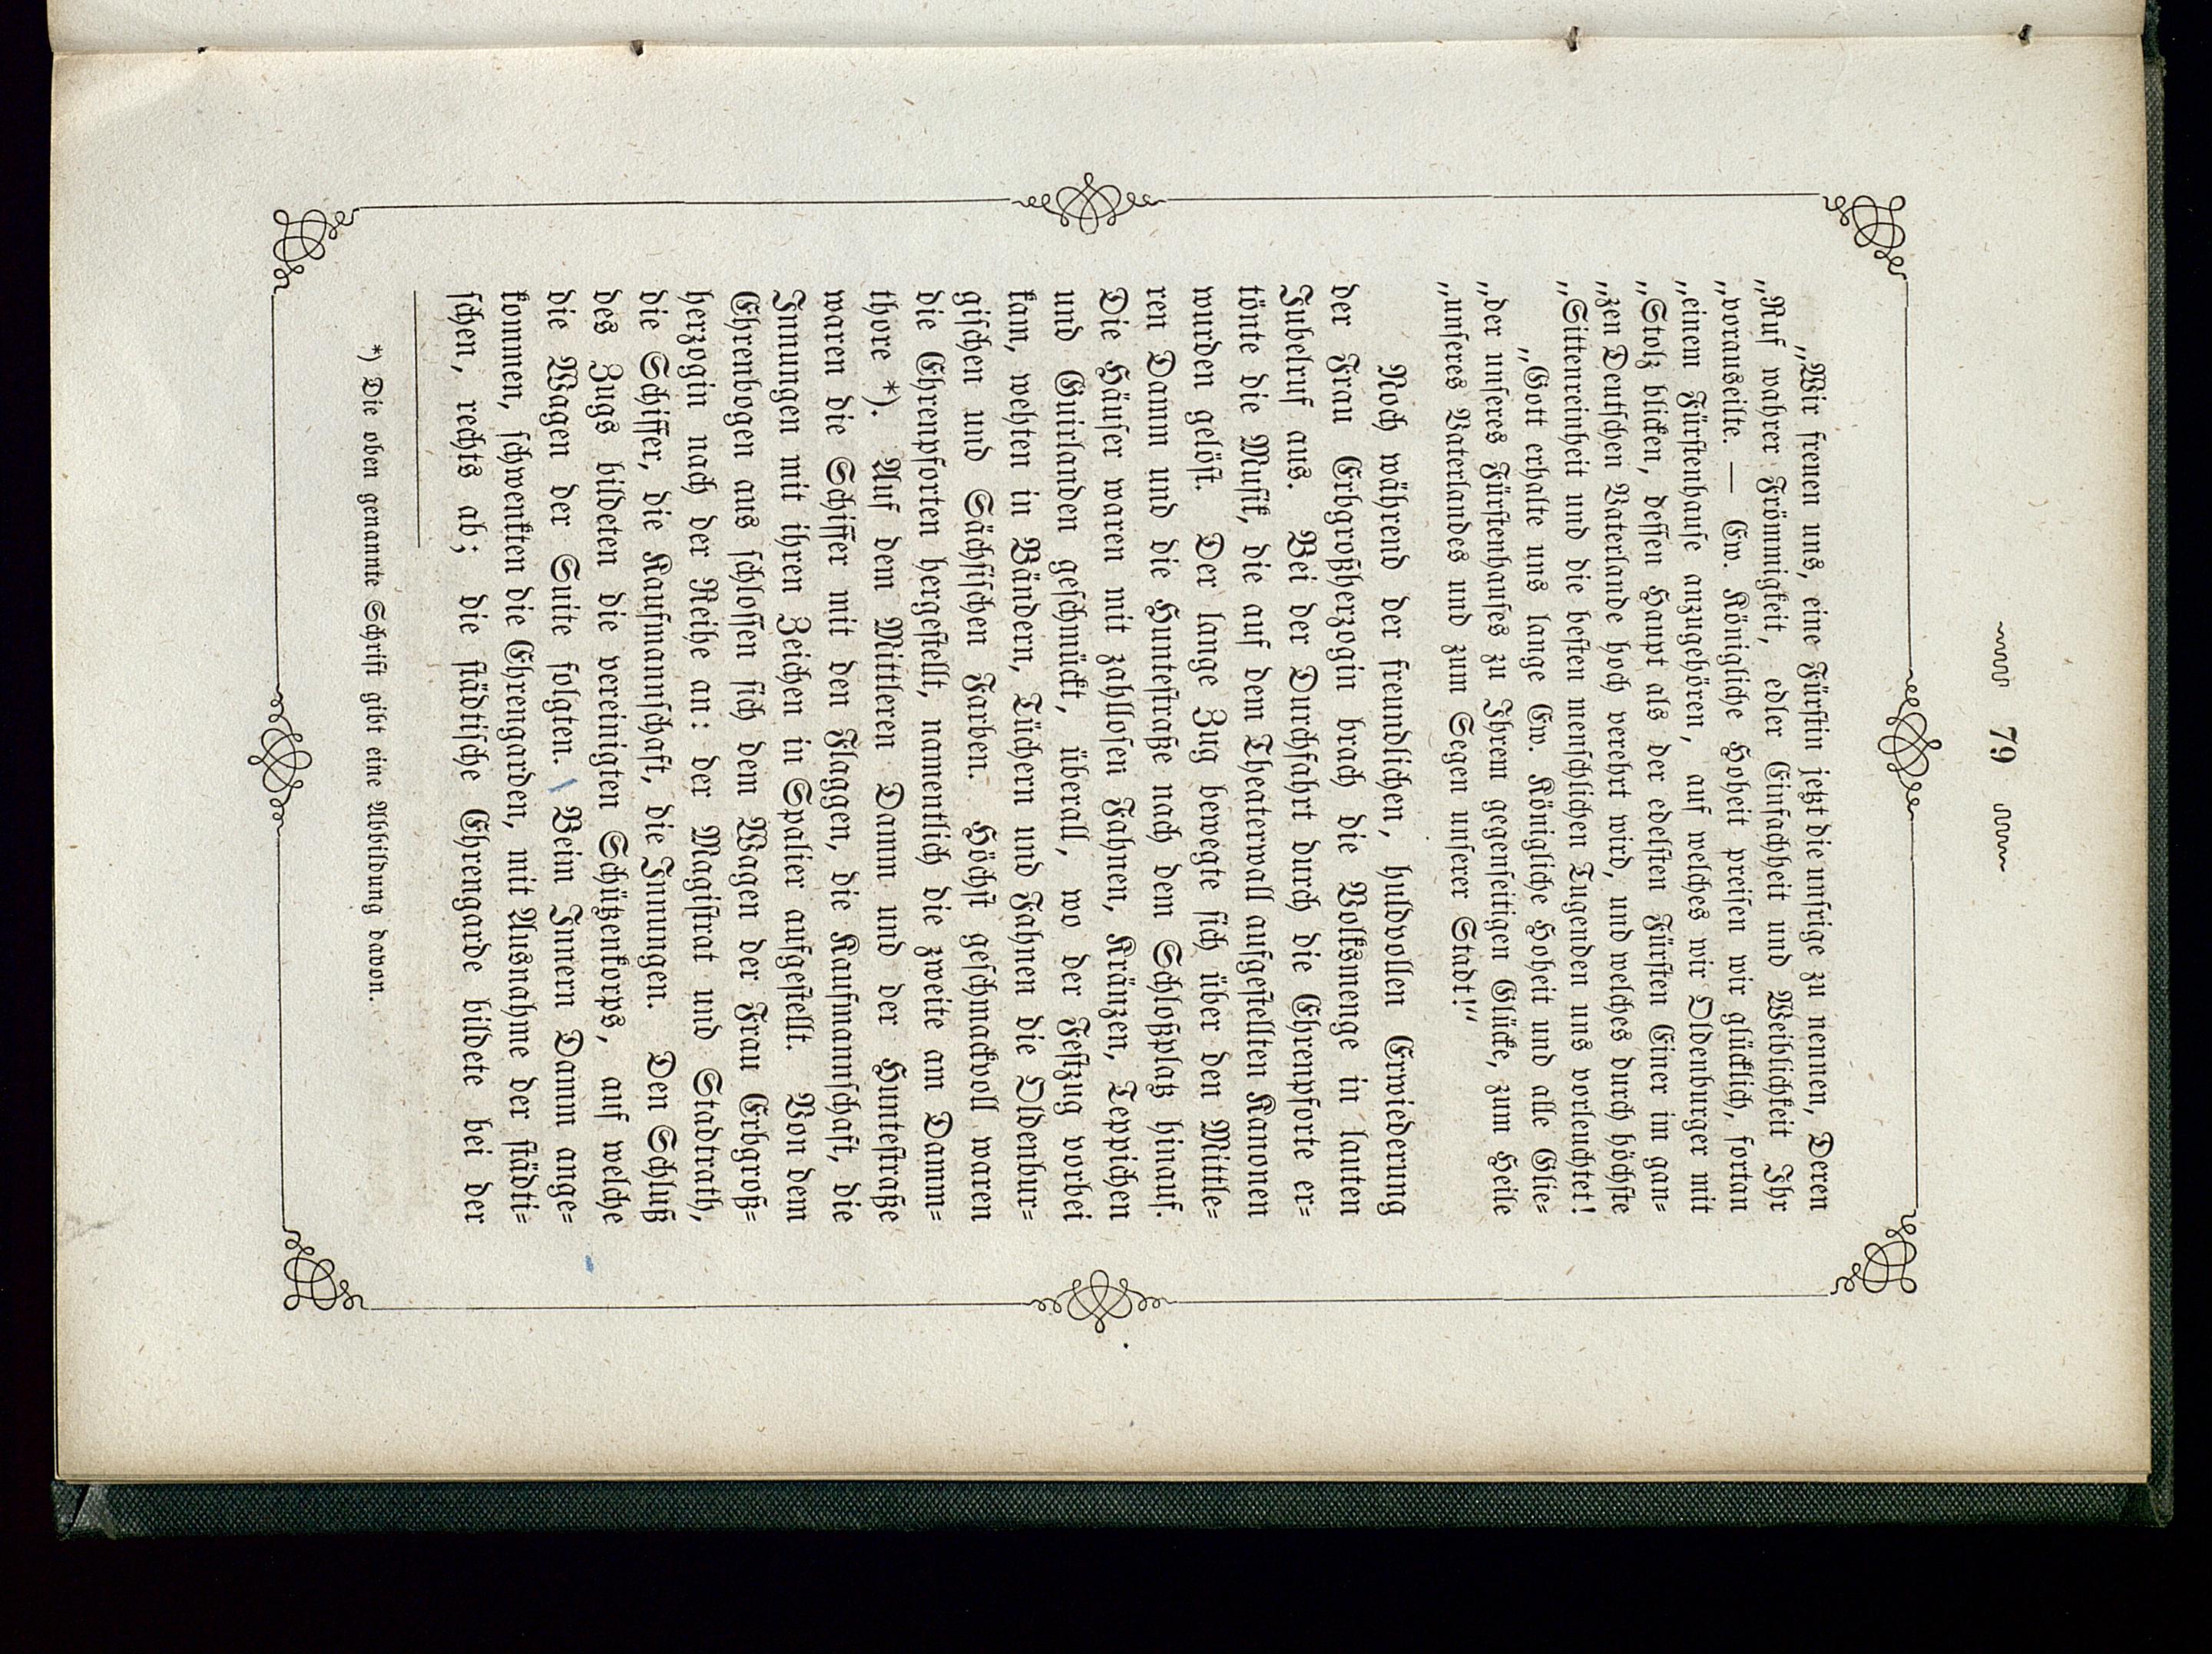 79
„Wir freuen uns, eine Fürstin jetzt die unsrige zu nennen, Deren
„Ruf wahrer Frömmigkeit, edler Einfachheit und Weiblichkeit Ihr
„vorauseilte. — Ew. Königliche Hoheit preisen wir glücklich, fortan
„einem Fürstenhause anzugehören, auf welches wir Oldenburger mit
„Stolz blicken, dessen Haupt als der edelsten Fürsten Einer im gan-
„zen Deutschen Vaterlande hoch verehrt wird, und welches durch höchste
„Sittenreinheit und die besten menschlichen Tugenden uns vorleuchtet!
„Gott erhalte uns lange Ew. Königliche Hoheit und alle Glie-
„der unseres Fürstenhauses zu Ihrem gegenseitigen Glücke, zum Heile
„unseres Vaterlandes und zum Segen unserer Stadt!“
Noch während der freundlichen, huldvollen Erwiederung
der Frau Erbgroßherzogin brach die Volksmenge in lauten
Jubelruf aus. Bei der Durchfahrt durch die Ehrenpforte er-
tönte die Musik, die auf dem Theaterwall aufgestellten Kanonen
wurden gelöst. Der lange Zug bewegte sich über den Mittle-
ren Damm und die Huntestraße nach dem Schloßplatz hinauf.
Die Häuser waren mit zahllosen Fahnen, Kränzen, Teppichen
und Guirlanden geschmückt, überall, wo der Festzug vorbei
kam, wehten in Bändern, Tüchern und Fahnen die Oldenbur-
gischen und Sächsischen Farben. Höchst geschmackvoll waren
die Ehrenpforten hergestellt, namentlich die zweite am Damm-
thore *). Auf dem Mittleren Damm und der Huntestraße
waren die Schiffer mit den Flaggen, die Kaufmannschaft, die
Innungen mit ihren Zeichen in Spalier aufgestellt. Von dem
Ehrenbogen aus schlossen sich dem Wagen der Frau Erbgroß-
herzogin nach der Reihe an: der Magistrat und Stadtrath,
die Schiffer, die Kaufmannschaft, die Innungen. Den Schluß
des Zugs bildeten die vereinigten Schützenkorps, auf welche
die Wagen der Suite folgten. Beim Innern Damm ange-
kommen, schwenkten die Ehrengarden, mit Ausnahme der städti-
schen, rechts ab; die städtische Ehrengarde bildete bei der
*) Die oben genannte Schrift gibt eine Abbildung davon.